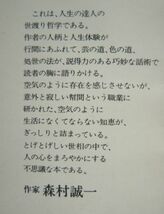 これは、人生の達人の
世渡り哲学である。
作者の人柄と人生体験が
行間にあふれて、芸の道、色の道、
処世の法が、説得力のある巧妙な話術で
読者の胸に語りかける。
空気のように存在を感じさせないが、
意外と寂しい幇間という職業に
研かれた、空気のように
生活になくてならない知恵が、
ぎっしりと詰まっている。
とげとげしい世相の中で、
人の心をまろやかにする
不思議な本である。
作家 森村誠一